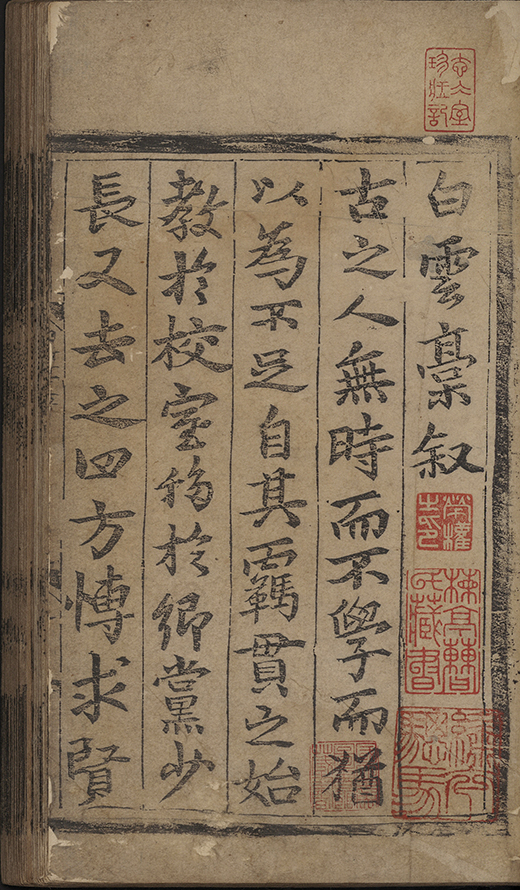 白雲稾叙
古之人無時而不學而猶
以為不足自其覊貫之始
教於校室彷於鄉黨少
長又去之四方博求賢